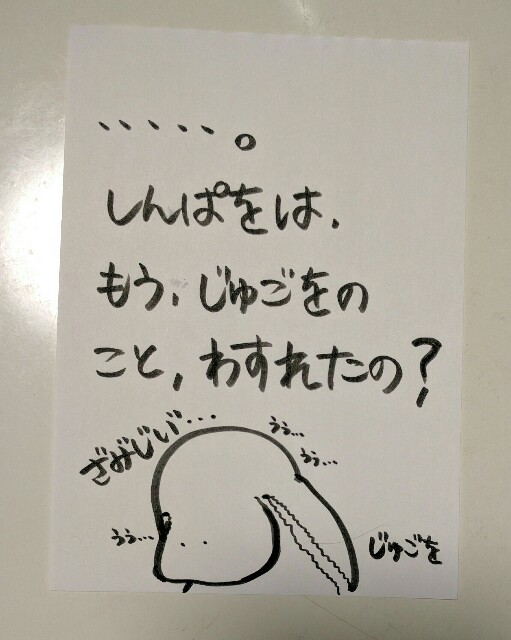 、、、、、。
しんぱをは、
もう、じゅごをの
こと、わすれたの?
ざみじい゛・・・
うぅ…
うぅ…
うぅ…
じゅごを